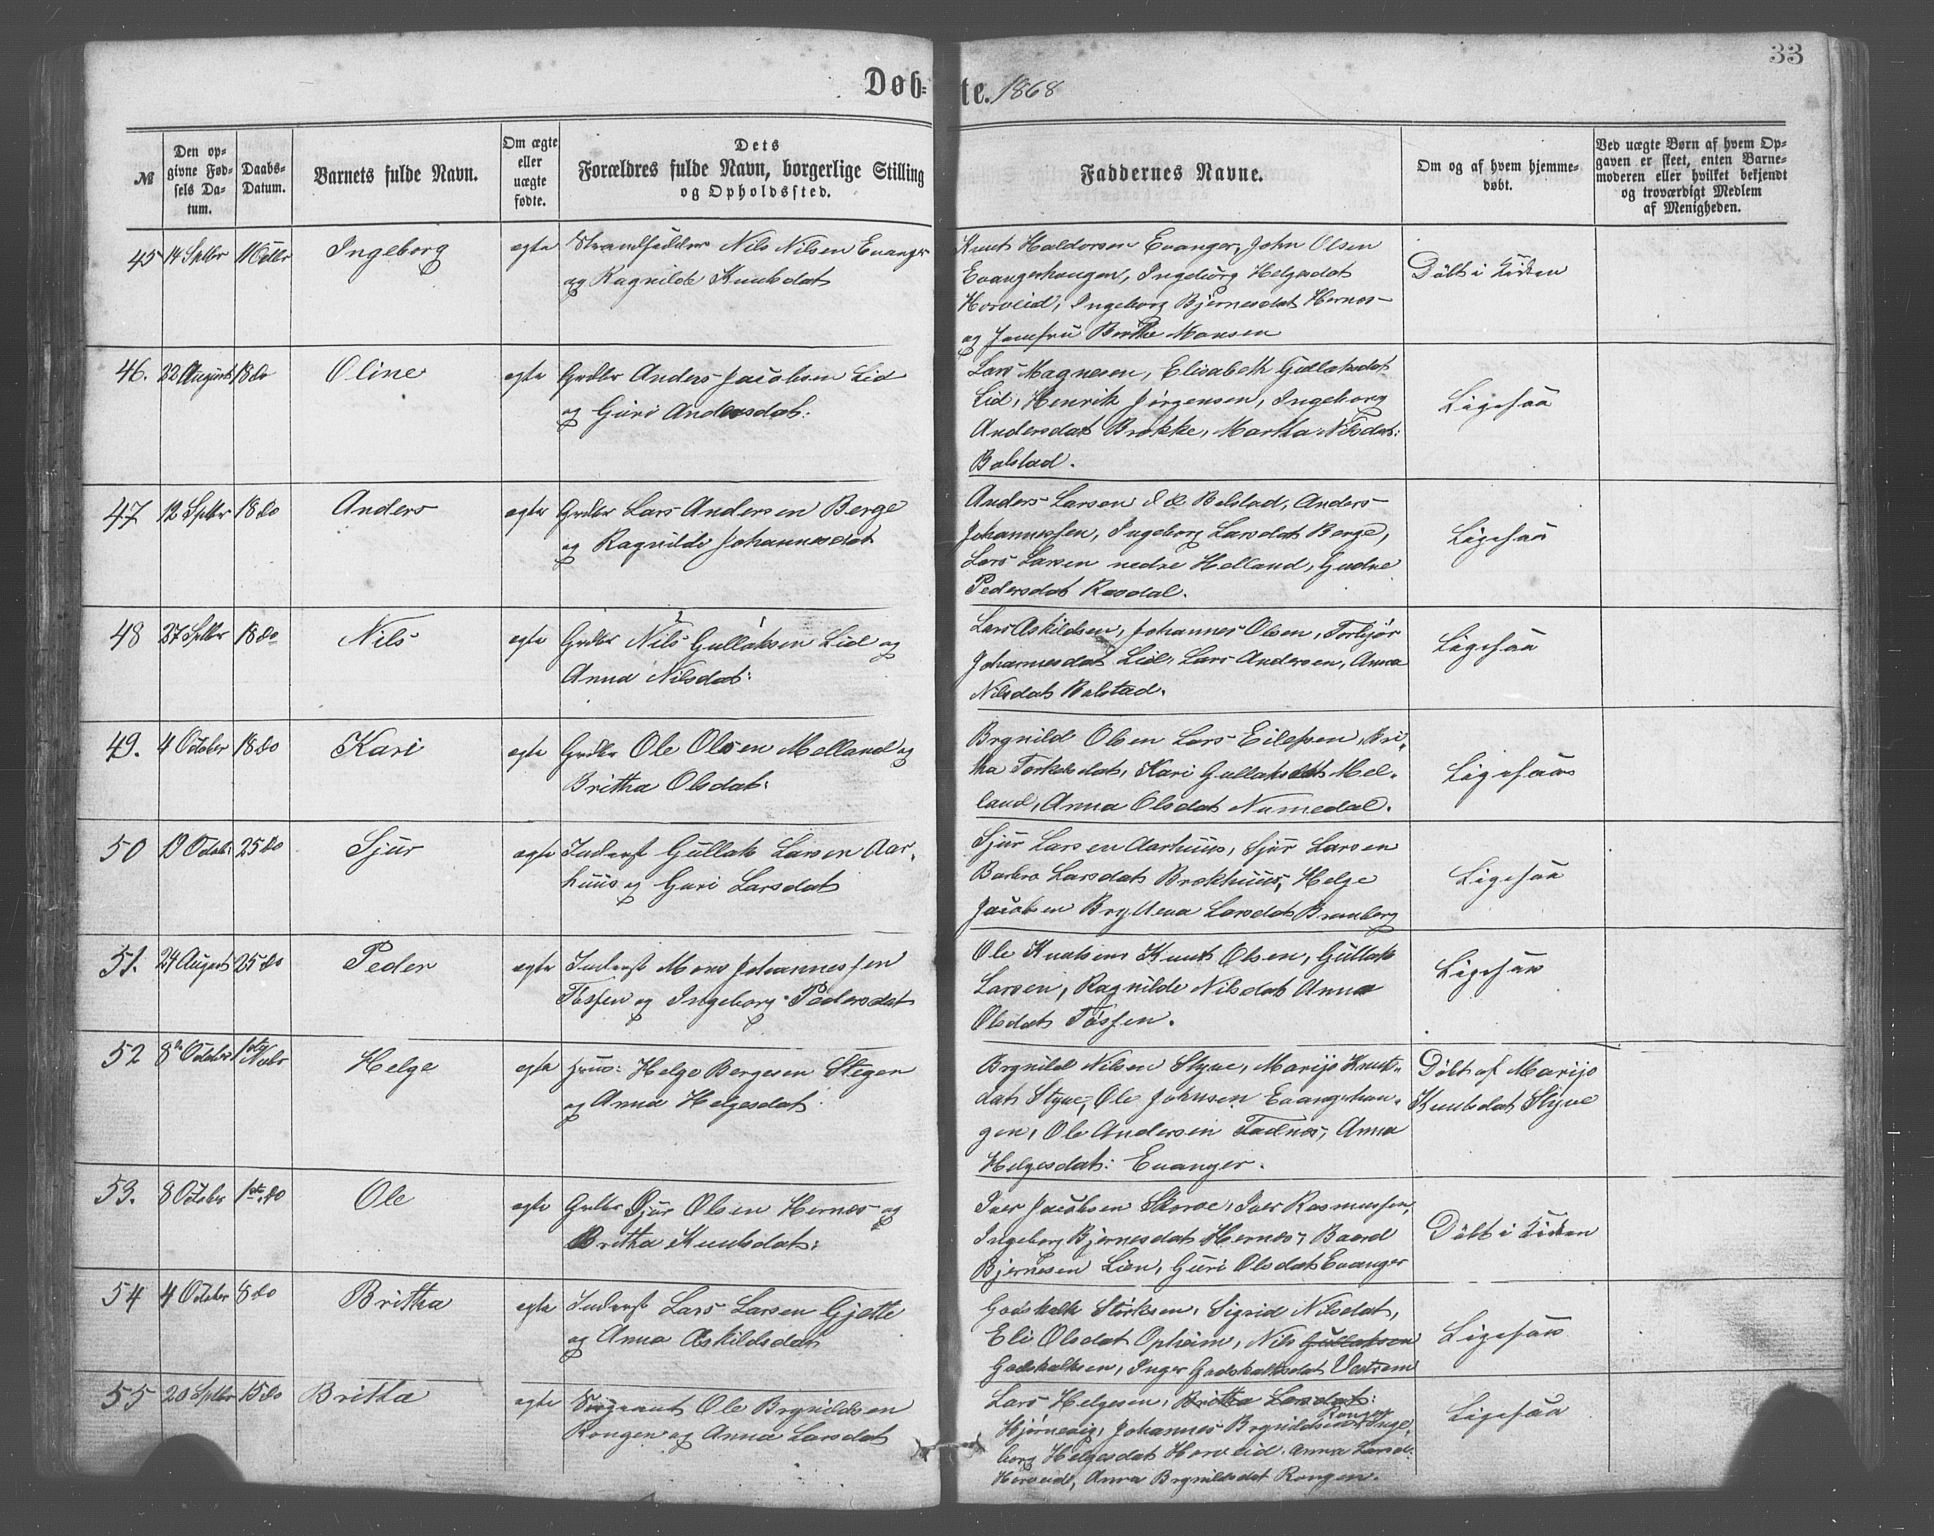 33
Døb=te. 1868
№
Den op-
givne Fød-
sels Da-
tum.
Daabs-
Datum.
Barnets fulde Navn.
Om ægte
eller
uægte
fødte.
Dets
Forældres fulde Navn, borgerlige Stilling
og Opholdssted.
Faddernes Navne.
Om og af hvem hjemme-
døbt.
Ved uægte Børn af hvem Op-
gaven er skeet, enten Barne-
moderen eller hvilket bekjendt
og troværdigt Medlem
af Menigheden.
45 14 Septbr 11 Octbr Ingeborg egte Strandsidder Nils Nilsen Evanger
og Ragnilde Knutsdat
Knut Haldorsen Evanger, John Olsen
Evangerhaugen, Ingeborg Helgesdat
Horveid, Ingeborg Bjernesdat Hernes
og Jomfru Berthe Monsen
Döbt i Kirken
46. 22 August 18 do Oline egte Grdbr Anders Jacobsen Lid
og Guri Andersdat:
Lars Magnesen, Elisabeth Gullaksdat
Lid, Henrik Jørgensen, Ingeborg
Andersdat Brække, Martha Nilsdat:
Bolstad.
Ligesaa
47 12 Septbr 18 do Anders egte Grdbr Lars Andersen Berge
og Ragnilde Johannesdat
Anders Larsen Bolstad, Anders
Johannessen, Ingeborg Larsdat Berge,
Lars Larsen nedre Helland, Gudve
Pedersdat Rasdal.
Ligesaa
48 27 Septbr 18 do Nils egte Grdbr Nils Gullaksen Lid og
Anna Nilsdat:
Lars Askildsen, Johannes Olsen, Torbjör
Johannesdat Lid, Lars Andersen, Anna
Nilsdat Bolstad.
Ligesaa
49. 4 October 18 do Kari egte Grdbr Ole Olsen Melland og
Britha Olsdat:
Brynild Olsen Lars Eilefsen, Bri-
tha Torkelsdat, Kari Gullaksdat Mel-
land, Anna Olsdat Numedal.
Ligesaa
50 Octob: 25 do Sjur egte Inderst Gullak Larsen Aar-
huus og Guri Larsdat
Sjur Larsen Aarhuus, Sjur Larsen
Barbro Larsdat Brækhuus, Helge
Jacobsen Larsdat Brunborg
Ligesaa
51. 24 August 25 do Peder egte Inderst Mons Johannessen
Tøssen og Ingeborg Pedersdat
Ole Knutsen Knut Olsen, Gullak
Larsen, Ragnilde Nilsdat Anna
Olsdat Tøssen.
Ligesaa
52 8de October 1ste Novbr Helge egte Huus: Helge Bergesen Steger
og Anna Helgesdat
Brynild Nilsen Styve, Marijo Knuts-
dat Styve, Ole Johnsen Evangerhau-
gen, Ole Andersen Fadnes, Anna
Helgesdat: Evanger.
Döbt af Marijo
Knutsdat Styve
53. 8 October 1ste do Ole egte Grdbr Sjur Olsen Hernes og
Britha Knutsdat:
Iver Jacobsen Skorve, Iver Rasmussen,
Ingeborg Bjernesdat Hernes, Baard
Bjernesen Lien, Guri Olsdat Evanger
Döbt i Kirken
54 4 October 8 do Britha egte Inderst Lars Larsen Gjelle
og Anna Askildsdat
Godskalk Störksen, Sigrid Nilsdat,
Eli Olsdat Opheim, Nils Gullaksen
Godskalksen, Inger Godskalksdat Vestrem
Ligesaa
55 20 Septbr 15 do Britha egte Sergeant Ole Brynildsen
Rongen og Anna Larsdat
Lars Helgesen, Britha Larsdat:
Hjørnevig, Johannes Brynildsen Rongen Inge-
borg Helgesdat Horveid, Anna Larsd:
Horveid, Anna Brynildsdat Rongen.
Ligesaa